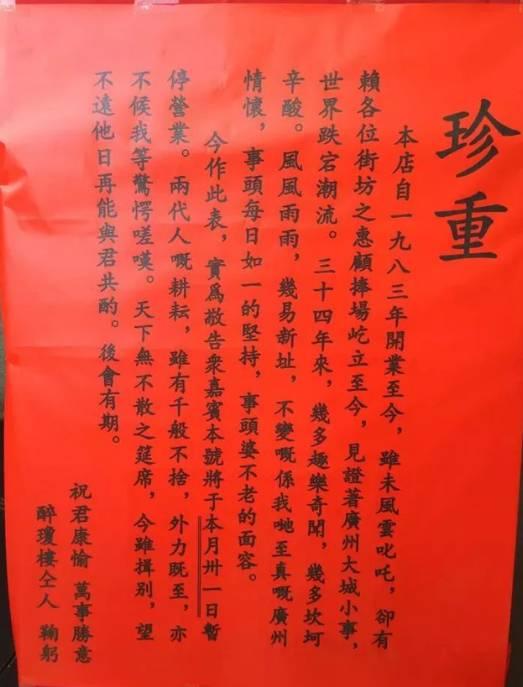 珍重
本店自一九八三年開業至今，雖未風雲叱吒，卻有
賴各位街坊之惠顧捧場屹立至今，見證著廣州大城小事，
世界跌宕潮流。三十四年來，幾多趣樂奇聞，幾多坎坷
辛酸。風風雨雨，幾易新址，不變嘅係我哋至真嘅廣州
情懷，事頭每日如一的堅持，事頭婆不老的面容。
今作此表，實為敬告衆嘉賓本號將于本月卅一日暫
停營業。兩代人嘅耕耘，雖有千般不捨，外力既至，亦
不候我等驚愕嗟嘆。天下無不散之筵席，今雖揖别，望
不遠他日再能與君共酌。後會有期。
祝君康愉 萬事勝意
醉瓊樓仝人 鞠躬